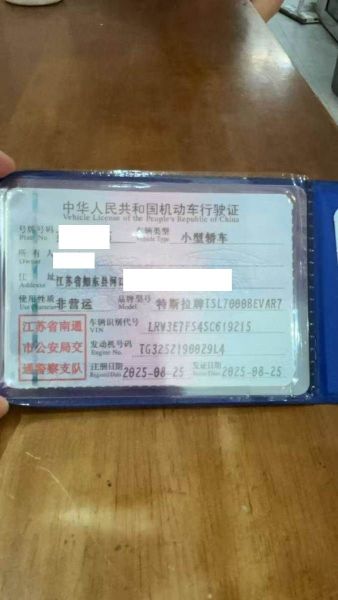 中华人民共和国机动车行驶证
Vehicle License of the People's Republic of China
号牌号码 车辆类型 小型轿车
Plate No. Vehicle Type
所有人
Owner
住址 江苏省如东县
Address
使用性质 非营运 品牌型号 特斯拉牌TSL7000BEVAR7
Use Character Model
江苏省南通 车辆识别代号 LRW3E7FS4SC619215
VIN
市公安局交 发动机号码 TG3252190029L4
Engine No.
通警察支队 注册日期 2025-08-25 发证日期 2025-08-25
Register Date Issue Date